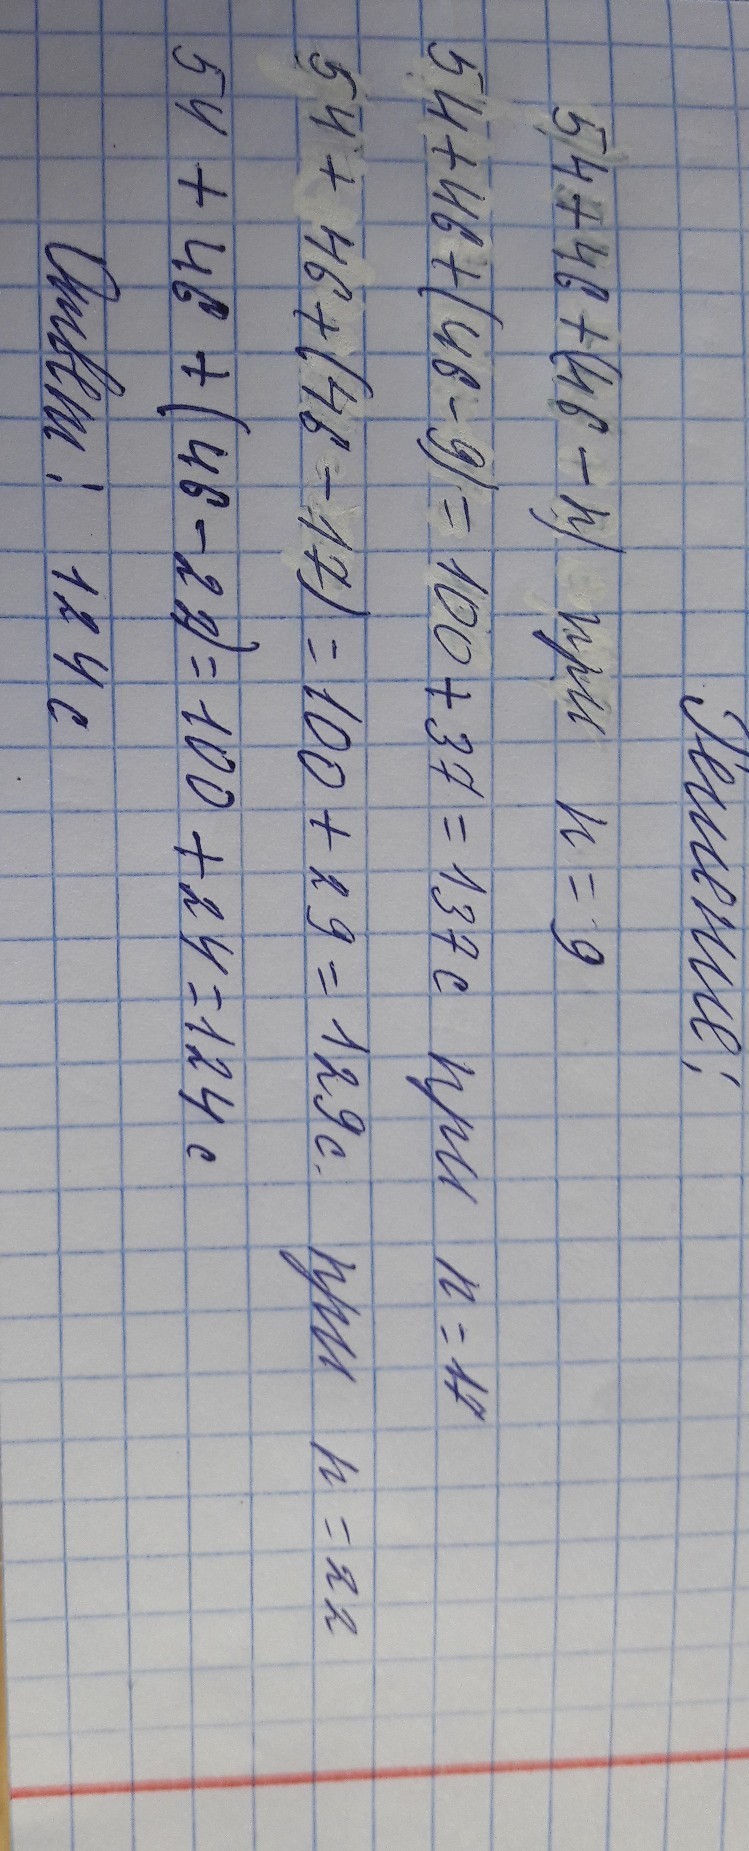 Решение:
54+46+(46-n) при n=9
54+46+(46-9)=100+37=137с при n=17
54+46+(46-17)=100+29=129с. при n=22
54+46+(46-22)=100+24=124с
Ответ: 124с